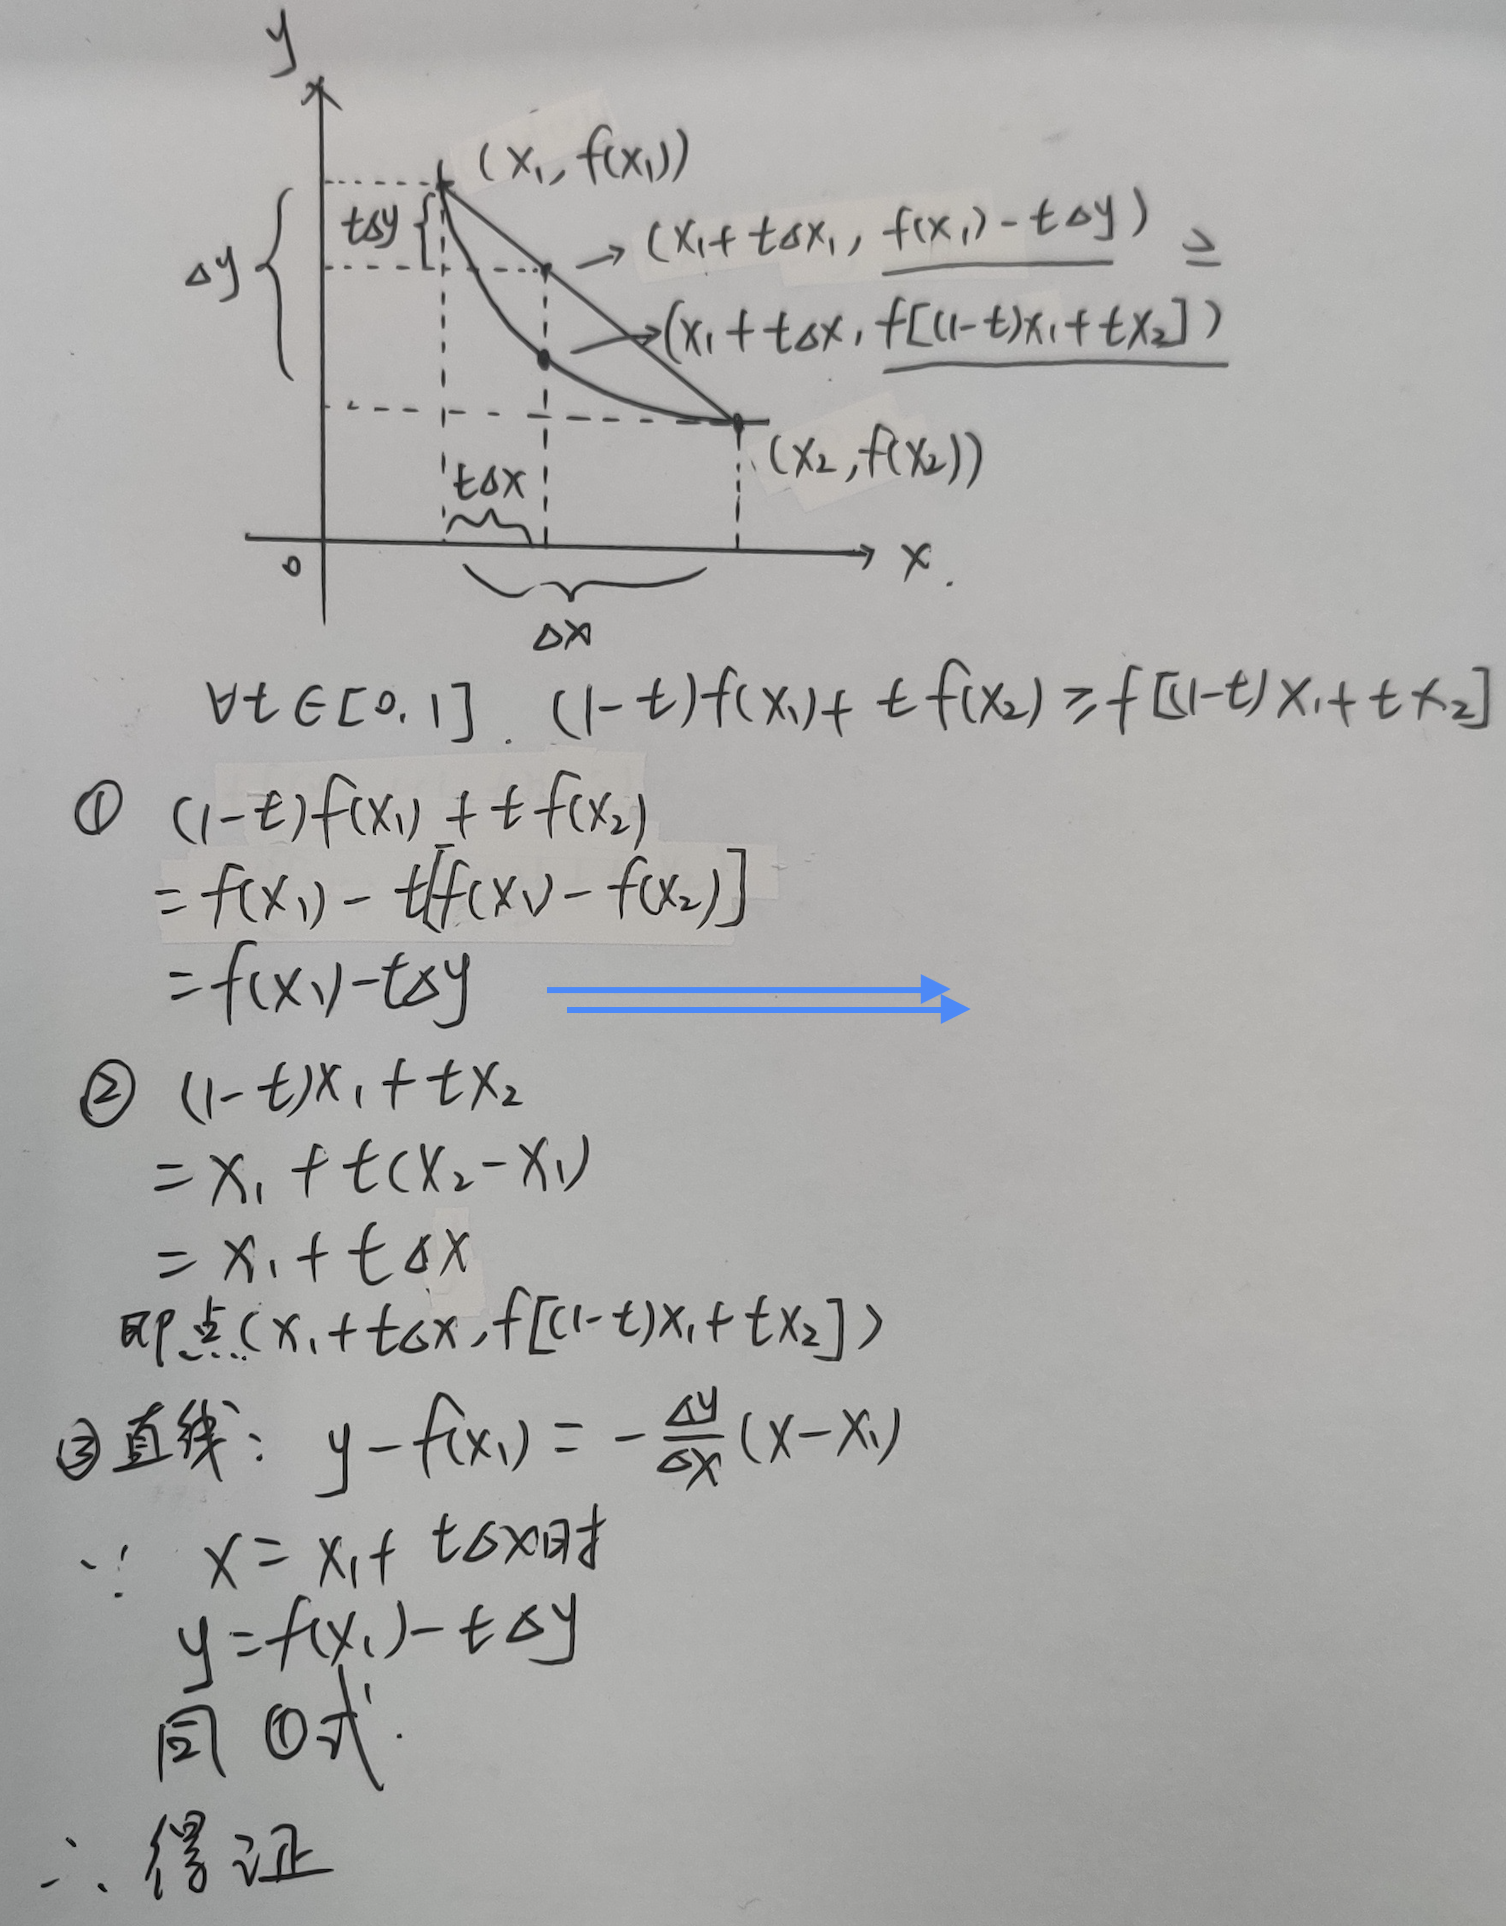 y
(x₁, f(x₁))
tΔy
(x₁+tΔx₁, f(x₁)-tΔy) ≥
Δy
(x₁+tΔx, f[(1-t)x₁+tx₂])
(x₂, f(x₂))
tΔx
0
x.
Δx
∀t∈[0,1]. (1-t)f(x₁)+tf(x₂)≥f[(1-t)x₁+tx₂]
① (1-t)f(x₁)+tf(x₂)
=f(x₁)-t[f(x₁)-f(x₂)]
=f(x₁)-tΔy
② (1-t)x₁+tx₂
=x₁+t(x₂-x₁)
=x₁+tΔx
即点(x₁+tΔx,f[(1-t)x₁+tx₂])
③直线: y-f(x₁)=-Δy/Δx(x-x₁)
∵ x=x₁+tΔx时
y=f(x₁)-tΔy
同①式.
∴得证